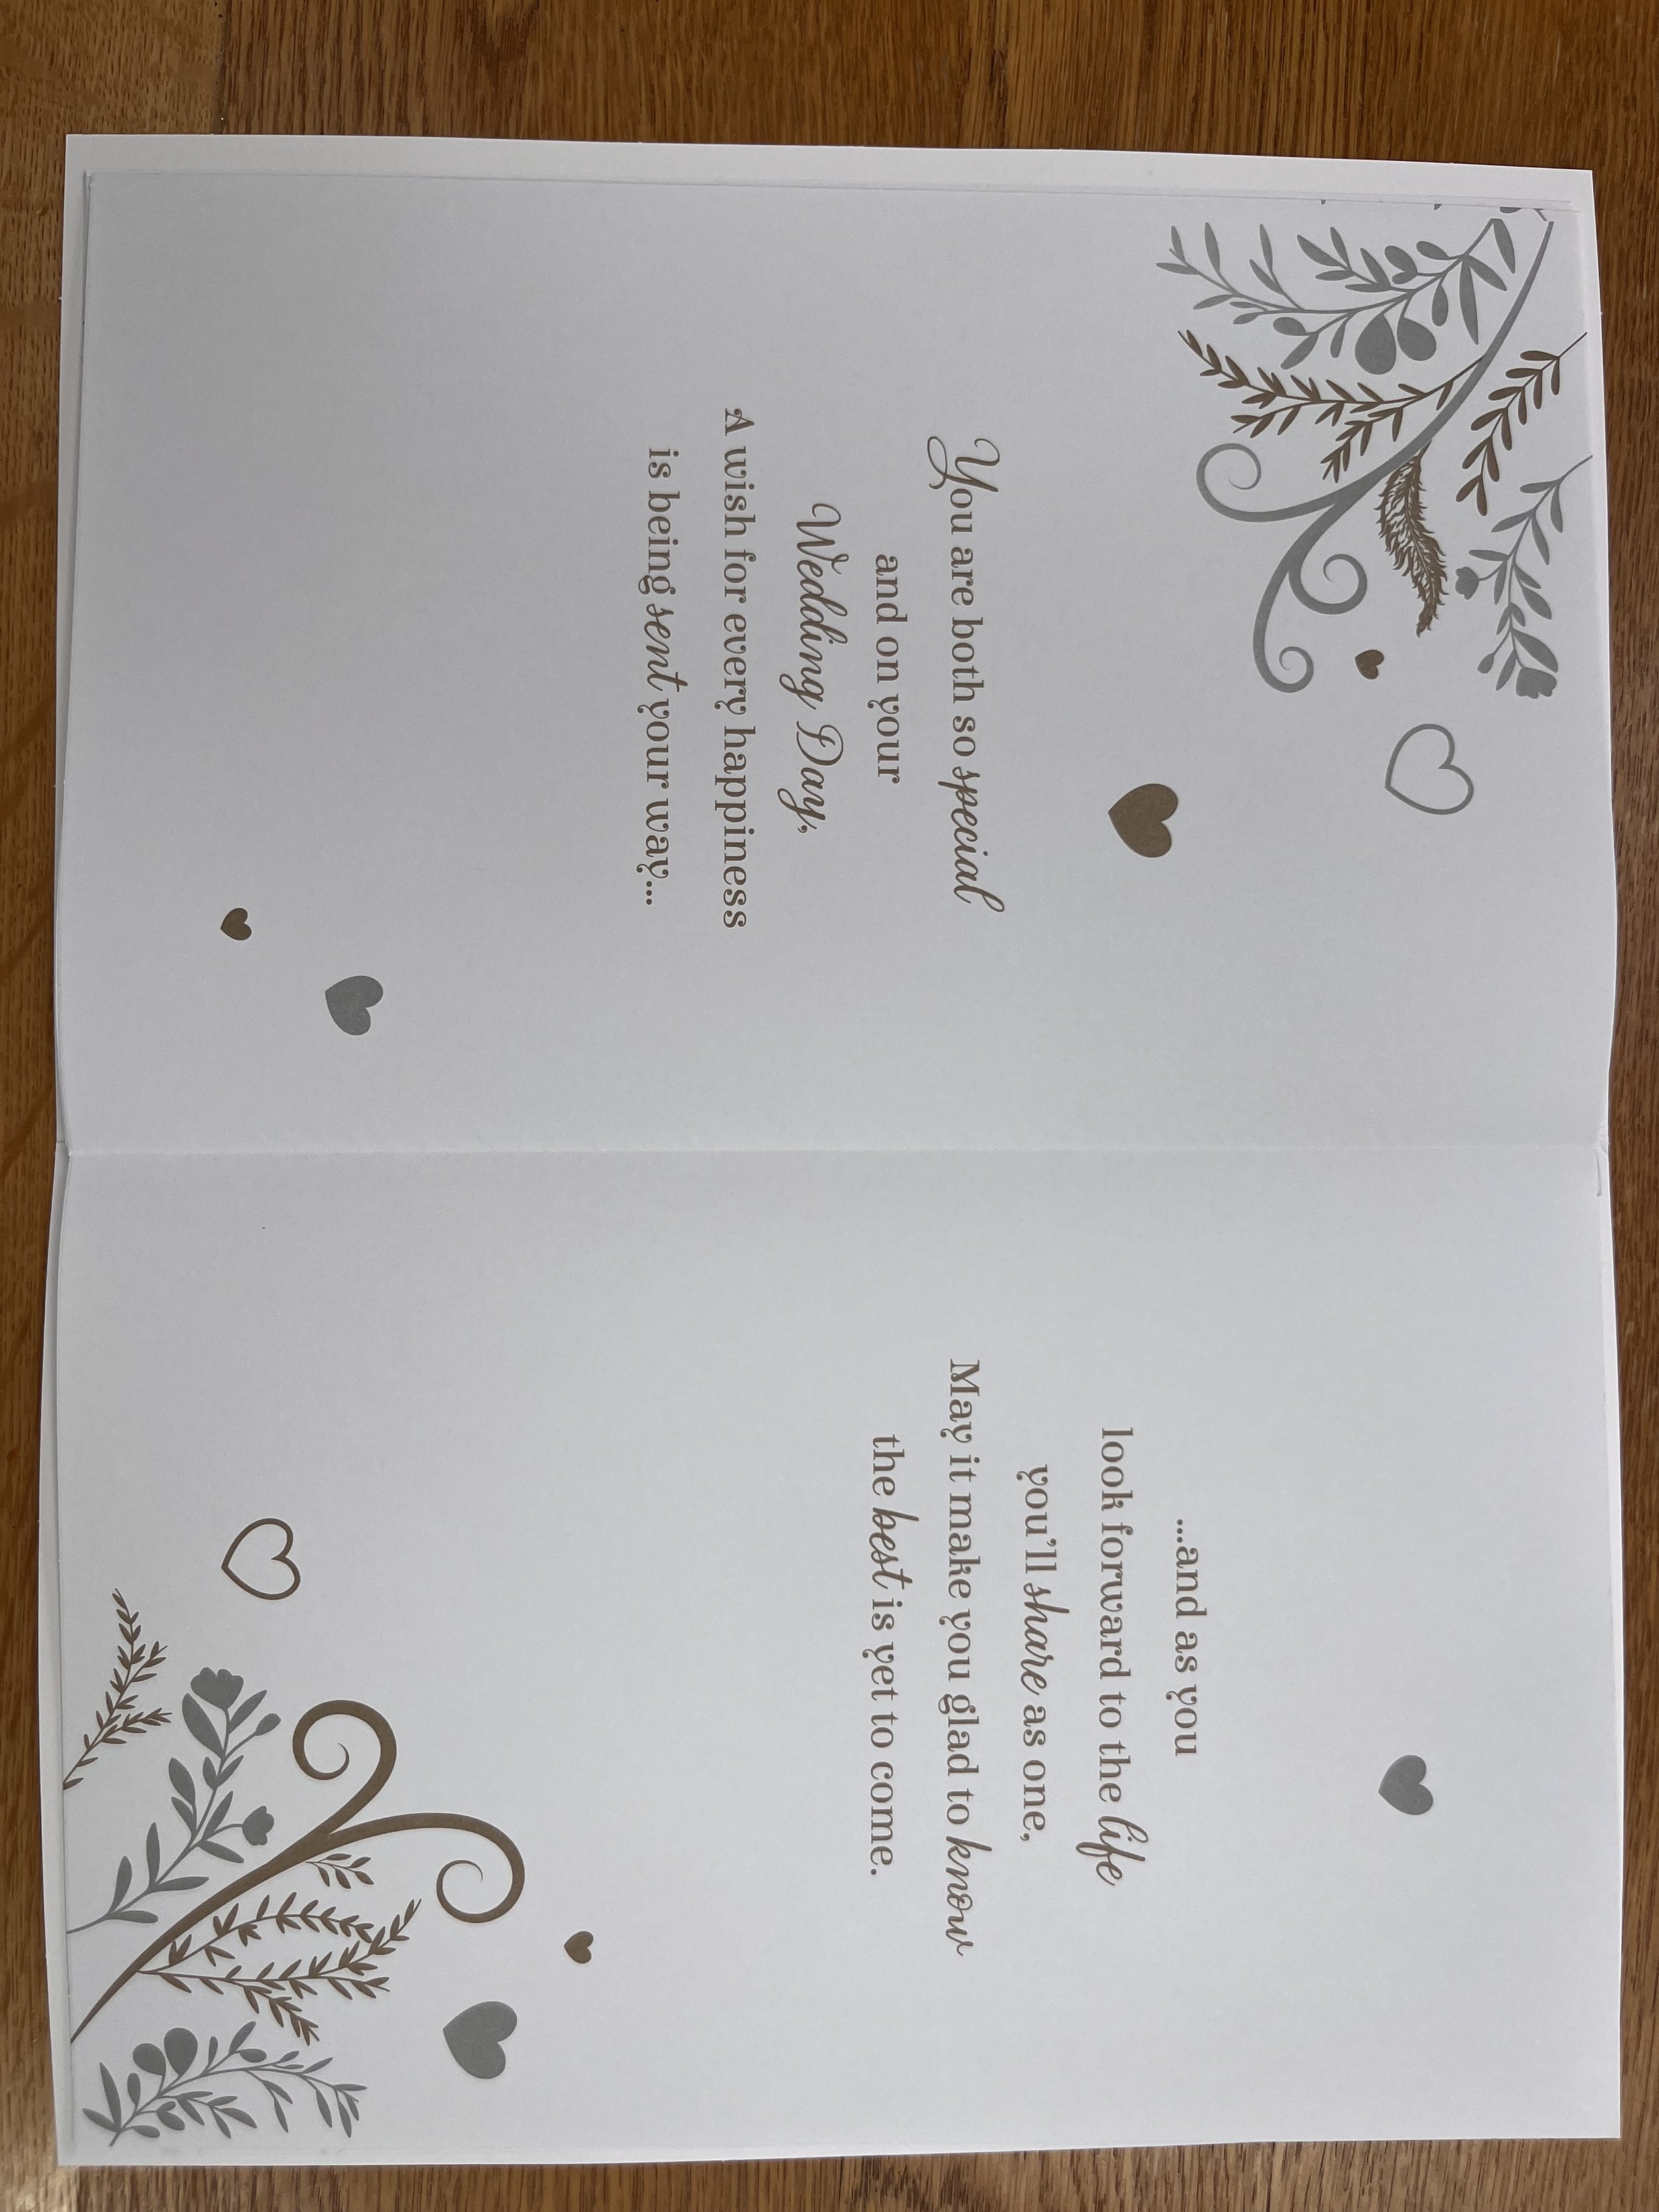 You are both so special
and on your
Wedding Day,
A wish for every happiness
is being sent your way...
...and as you
look forward to the life
you'll share as one,
May it make you glad to know
the best is yet to come.